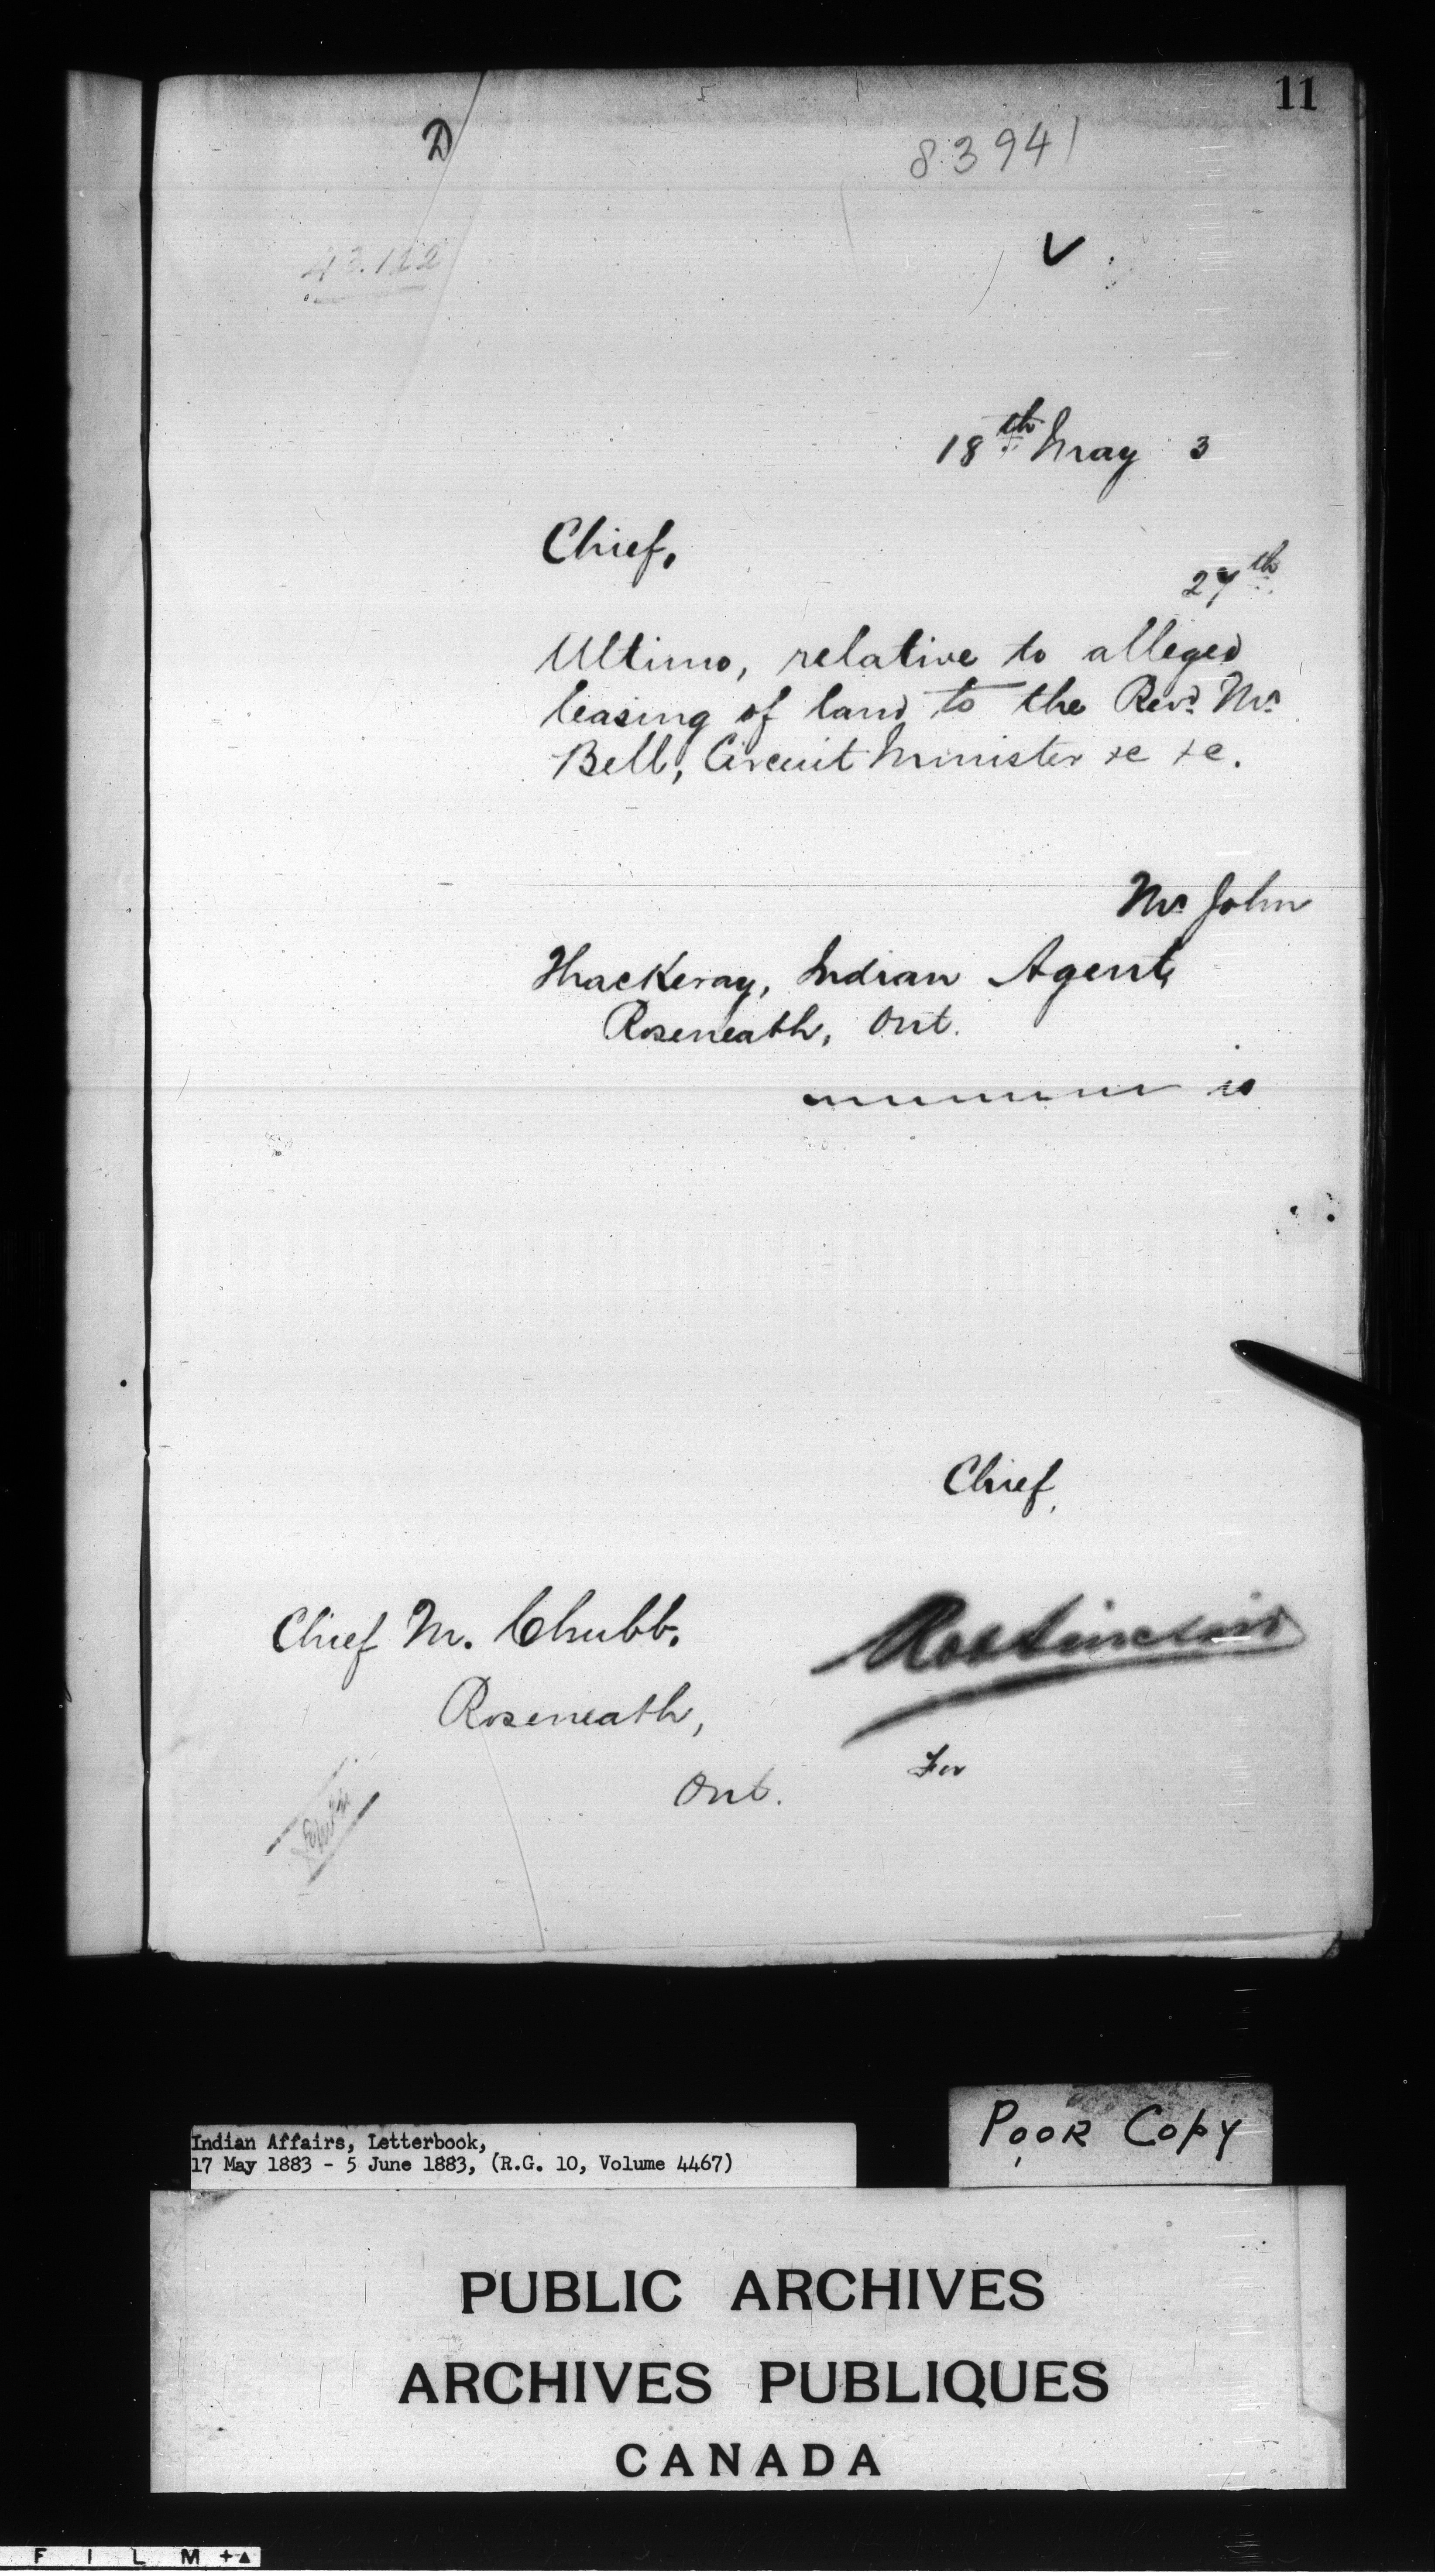 11
D
83941
43.122
18th May 3
Chief,
27th
Ultimo, relative to alleged
leasing of land to the Revd. Mr
Bell, Circuit Minister &c &c.
Mr John
Thackeray, Indian Agent,
Roseneath, Ont.
is
Chief,
Chief M. Chubb,
Rob Sinclair
Roseneath,
For
Ont.
POOR COPY
Indian Affairs, Letterbook,
17 May 1883 - 5 June 1883, (R.G. 10, Volume 4467)
PUBLIC ARCHIVES
ARCHIVES PUBLIQUES
CANADA
FILM